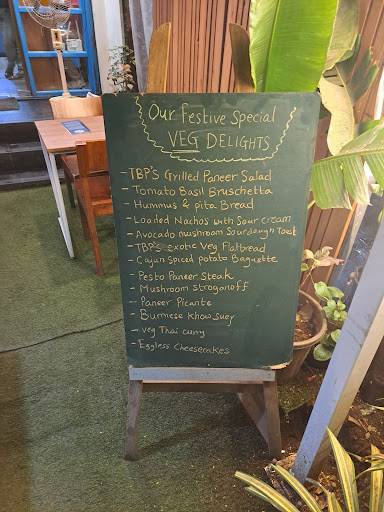 Our Festive Special
VEG DELIGHTS
- TBP'S Grilled Paneer Salad
- Tomato Basil Bruschetta
- Hummus & pita Bread
- Loaded Nachos with Sour cream
- Avocado mushroom Sourdough Toast
- TBP's exotic Veg Flatbread
- Cajun Spiced potato Baguette
- Pesto Paneer Steak
- Mushroom stroganoff
- Paneer Picante
- Burmese Khow Suey
- Veg Thai curry
- Eggless Cheesecakes